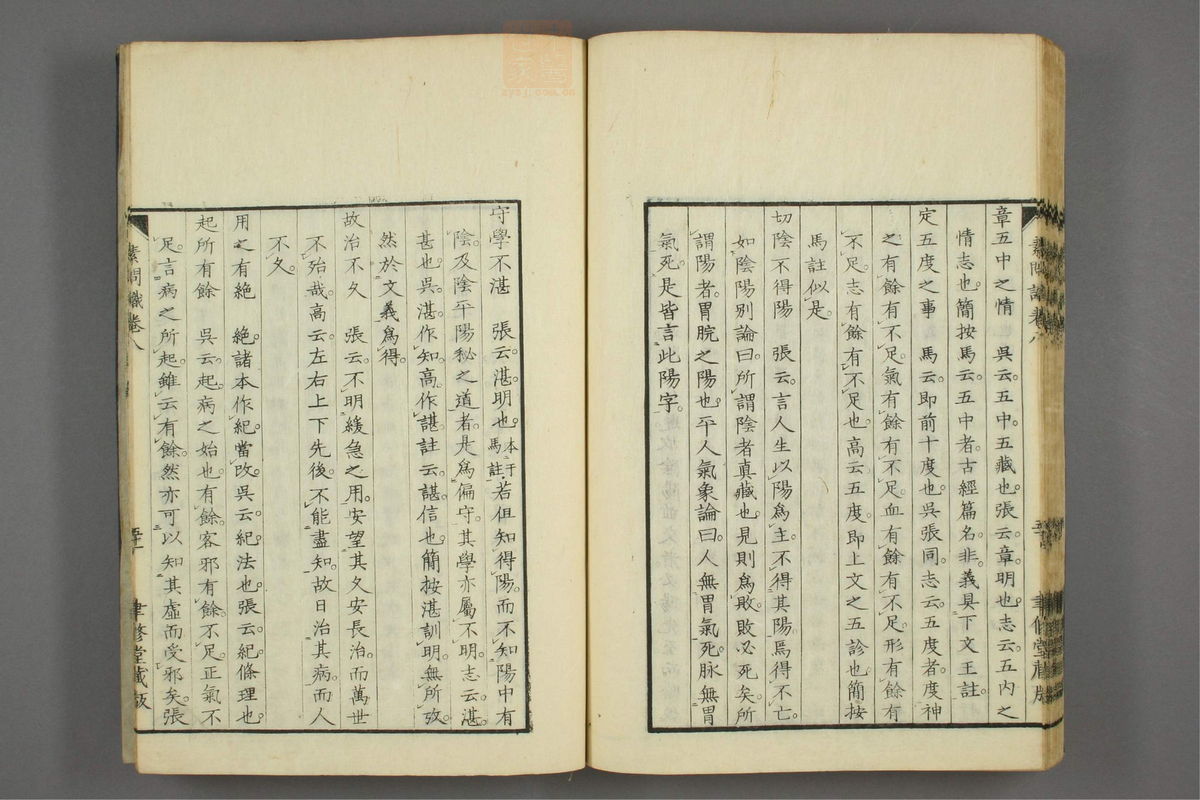 章五中之情　吳云五中。五藏也。張云。章明也。志云。五內之
情志也。簡按馬云。五中者。古經篇名。非。義具下文王註
定五度之事　馬云。即前十度也。吳張同。志云。五度者。度神
之有餘有不足。氣有餘有不足。血有餘有不足。形有餘有
不足。志有餘有不足也。高云。五度。即上文之五診也。簡按
馬註似是。
切陰不得陽　張云。言人生以陽爲主。不得其陽。焉得不亡。
如陰陽別論曰。所謂陰者眞藏也。見則爲敗。敗必死矣。所
謂陽者。胃脘之陽也。平人氣象論曰。人無胃氣死。脉無胃
氣死。是皆言此陽字。
守學不湛　張云。湛。明也。本于馬註若但知得陽。而不知陽中有
陰。及陰平陽秘之道者。是爲偏守。其學亦屬不明。志云。湛。
甚也。吳。湛作知。高。作諶。註云。諶。信也。簡按湛訓明。無所攷。
然於文義爲得。
故治不久　張云。不明緩急之用。安望其久安長治。而萬世
不殆哉。高云。左右上下先後。不能盡知。故日治其病。而人
不久。
用之有絕　絶。諸本作紀。當改。吳云。紀。法也。張云。紀。條理也。
起所有餘　吳云。起。病之始也。有餘。客邪有餘。不足。正氣不
足。言病之所起。雖云有餘。然亦可以知其虛而受邪矣。張
素問識卷八
聿修堂藏版
素問識卷八
聿修堂藏版